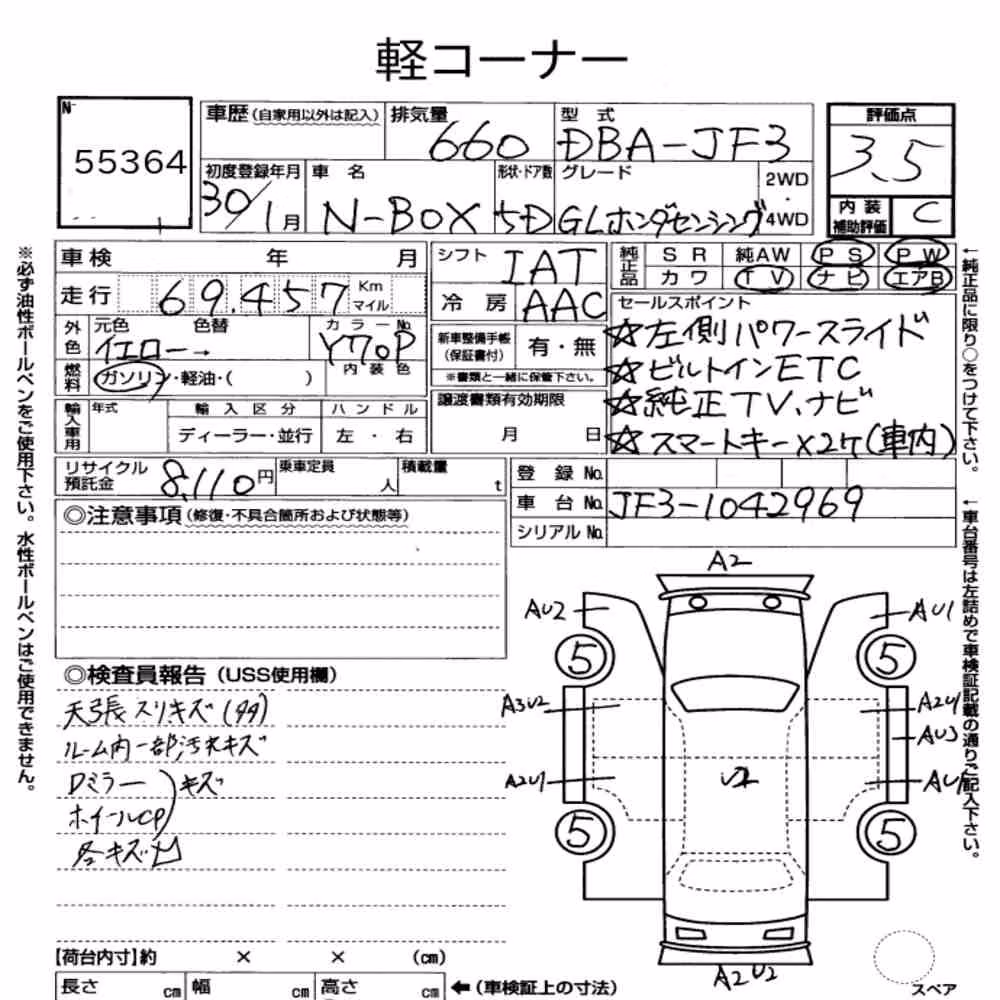 軽コーナー
No.
55364
車歴(自家用以外は記入)
排気量
660
型 式
DBA-JF3
評価点
3.5
初度登録年月
30/1月
車 名
N-BOX
形状・ドア数
5D
グレード
GLホンダセンシング
2WD
4WD
内装
補助評価
C
車検 年 月
シフト
IAT
純正品
SR 純AW PS PW
カワ TV ナビ エアB
走行 69.457 Km
マイル
冷房
AAC
セールスポイント
☆左側パワースライド
☆ビルトインETC
☆純正TV、ナビ
☆スマートキー×2ケ(車内)
外色
元色 色替
イエロー→
カラーNo.
Y70P
内装色
新車整備手帳
(保証書付)
有・無
※書類と一緒に保管下さい。
燃料
ガソリン・軽油・( )
譲渡書類有効期限
月 日
輸入車用
年式
輸入区分
ディーラー・並行
ハンドル
左・右
リサイクル
預託金
8,110円
乗車定員
人
積載量
t
登録No.
車台No.
JF3-1042969
シリアルNo.
◎注意事項(修復・不具合箇所および状態等)
◎検査員報告(USS使用欄)
天張スリキズ(タタ)
ルーム内一部汚れキズ
Dミラー
ホイールCP
キズ
各キズ凹
A2
AU2
AU1
5
5
A3U2
A2U1
AU3
A2U1
U2
5
5
A2U2
スペア
【荷台内寸】約 × × (cm)
長さ cm 幅 cm 高さ cm
←(車検証上の寸法)
※必ず油性ボールペンをご使用下さい。水性ボールペンはご使用できません。
←純正品に限り○をつけて下さい。
←車台番号は左詰めで車検証記載の通りご記入下さい。